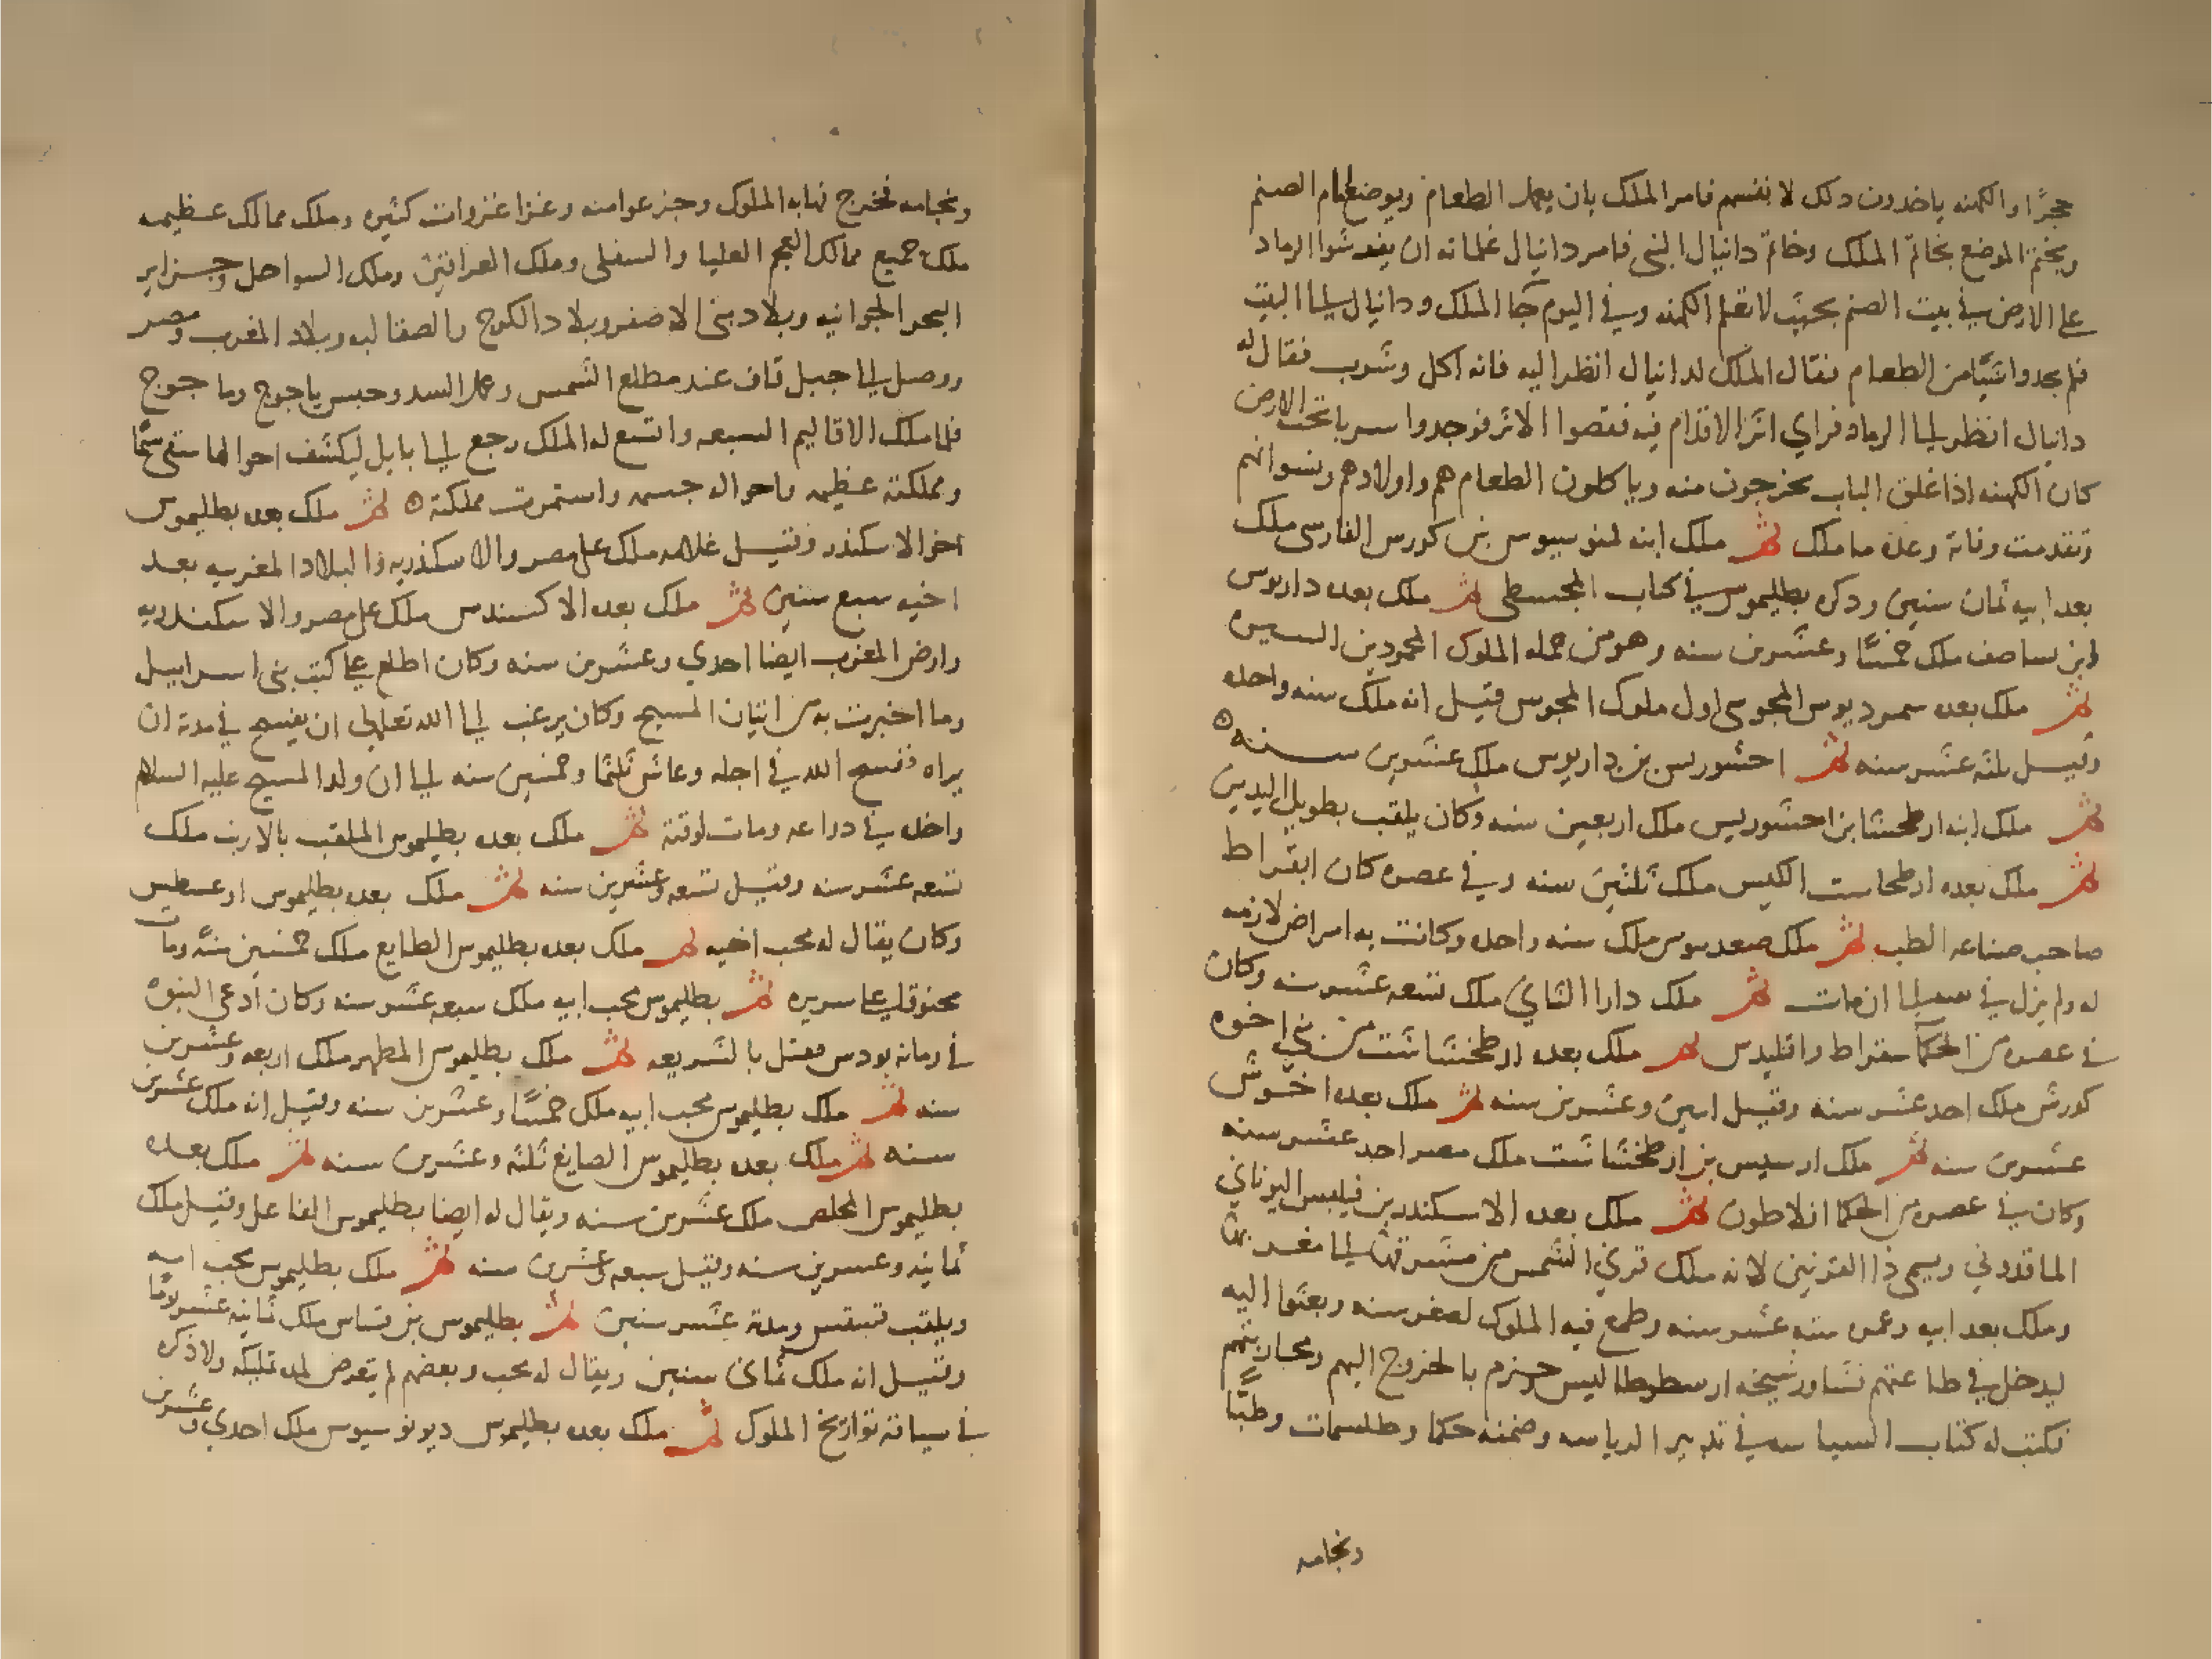 حجرًا والكهنه ياخدون دلك لانفسهم فامر الملك بان يعمل الطعام ويوضع امام الصنم
ويختم الموضع بخاتم الملك وخاتم دانيال النبى فامر دانيال غلمانه ان يفرشوا الرماد
على الارض في بيت الصنم بحيث لا تعلم الكهنه وفي اليوم جا الملك ودانيال الى البيت
فلم يجدوا شيًا من الطعام فقال الملك لدانيال انظر اليه فانه اكل وشرب فقال له
دانيال انظر الى الرماد فراي اثر الاقدام فيه فقصوا الاثر فوجدوا سربا تحت الارض
كان الكهنه اذا غلق الباب يخرجون منه وياكلون الطعام هم واولادهم ونسوانهم
وتقدمت وفاته وعدة ما ملك ثم ملك ابنه بن كورس الفارسى ملك
بعد ابيه ثمان سنين ودكره بطليموس في كتاب المجسطى ثم ملك بعده داريوس
ابن ملك خمسًا وعشرين سنه وهو من جمله الملوك المحمودين السيره
ثم ملك بعده المجوسى اول ملوك المجوس قيل انه ملك سنه واحده
وقيل ثلثه عشر سنه ثم احشورس بن داريوس ملك عشرين سنه
ثم ملك ابنه ارطحشا بن احشوريس ملك اربعين سنه وكان يلقب بطويل اليدين
ثم ملك بعده ارطحاست الكيس ملك ثلثين سنه وفي عصره كان ابقراط
صاحب صناعه الطب ثم ملك سنه واحده وكانت به امراض لازمه
له ولم يزل في الى ان مات ثم ملك دارا الثاني ملك تسعه عشر سنه وكان
في عصره من الحكما سقراط واقليدس ثم ملك بعده ارطخشاشت من بنى اخوه
كورش ملك احد عشر سنه وقيل وعشرين سنه ثم ملك بعده اخوش
عشرين سنه ثم ملك ارسيس بن ارطخشاشت ملك مصر احد عشر سنه
وكان في عصره من الحكما افلاطون ثم ملك بعده الاسكندر بن فيلبس اليوناني
الماقدوني ويسمى ذا القرنين لانه ملك قرني الشمس من مشرقها الى مغربها
وملك بعد ابيه وعمره سته عشر سنه وطمع فيه الملوك لصغر سنه وبعثوا اليه
ليدخل في طاعتهم فشاور شيخه ارسطوطاليس بالخروج اليهم ومحاربتهم
فكتب له كتاب السياسه في تدبير الرياسه وضمنه حكما وطلسمات وطبًا
ونجامه
ونجامه فخرج فهابه الملوك وجزعوا منه وغزا غزوات كثيره وملك ممالك عظيمه
ملك جميع ممالك العجم العليا والسفلى وملك العراقين وملك السواحل وجزاير
البحر الجوانيه وبلاد بنى الاصفر وبلاد الكرج والصقالبه وبلاد المغرب ومصر
ووصل الى جبل قاف عند مطلع الشمس وعمل السد وحبس ياجوج وماجوج
فلما ملك الاقاليم السبعه واتسع له الملك رجع الى بابل ليكشف احوالها سقى سمًا
ومملكته عظيمه واحواله جسمه واستمرت مملكته ثم ملك بعده بطليموس
اخو الاسكندر وقيل غلامه ملك على مصر والاسكندريه والبلاد المغربيه بعد
اخيه سبع سنين ثم ملك بعده الاكسندس ملك على مصر والاسكندريه
وارض المغرب ايضا احدي وعشرين سنه وكان اطلع على كتب بنى اسراييل
وما اخبرت به من اتيان المسيح وكان يرغب الى الله تعالى ان يفسح في مدته ان
يراه ففسح الله في اجله وعاش ثلثما وخمسين سنه الى ان ولد المسيح عليه السلام
واخذه في دراعه ومات لوقته ثم ملك بعده بطليموس الملقب بالارنب ملك
تسعه عشر سنه وقيل تسعه وعشرين سنه ثم ملك بعده بطليموس
وكان يقال له محب اخيه ثم ملك بعده بطليموس الطايع ملك خمسين سنه ومات
مخنوقا على سريره ثم بطليموس محب ابيه ملك سبعه عشر سنه وكان ادعى النبوه
في زمانه بالشريعه ثم ملك بطليموس المطهر ملك اربعه وعشرين
سنه ثم ملك بطليموس محب ابيه ملك خمسًا وعشرين سنه وقيل انه ملك عشرين
سنه ثم ملك بعده بطليموس الصايغ ثلثه وعشرين سنه ثم ملك بعده
بطليموس المخلص ملك عشرين سنه ويقال له ايضا بطليموس الفاعل وقيل ملك
ثمانيه وعشرين سنه وقيل سبعه وعشرين سنه ثم ملك بطليموس محب امه
ويلقب ومدة عشر سنين ثم بطليموس بن ملك ثمانيه عشر
وقيل انه ملك ثمانى سنين ويقال له محب وبعضهم لم يتعرض ولا ذكره
في سياقه تواريخ الملوك ثم ملك بعده بطليموس ديونوسيوس ملك احدي وعشرين